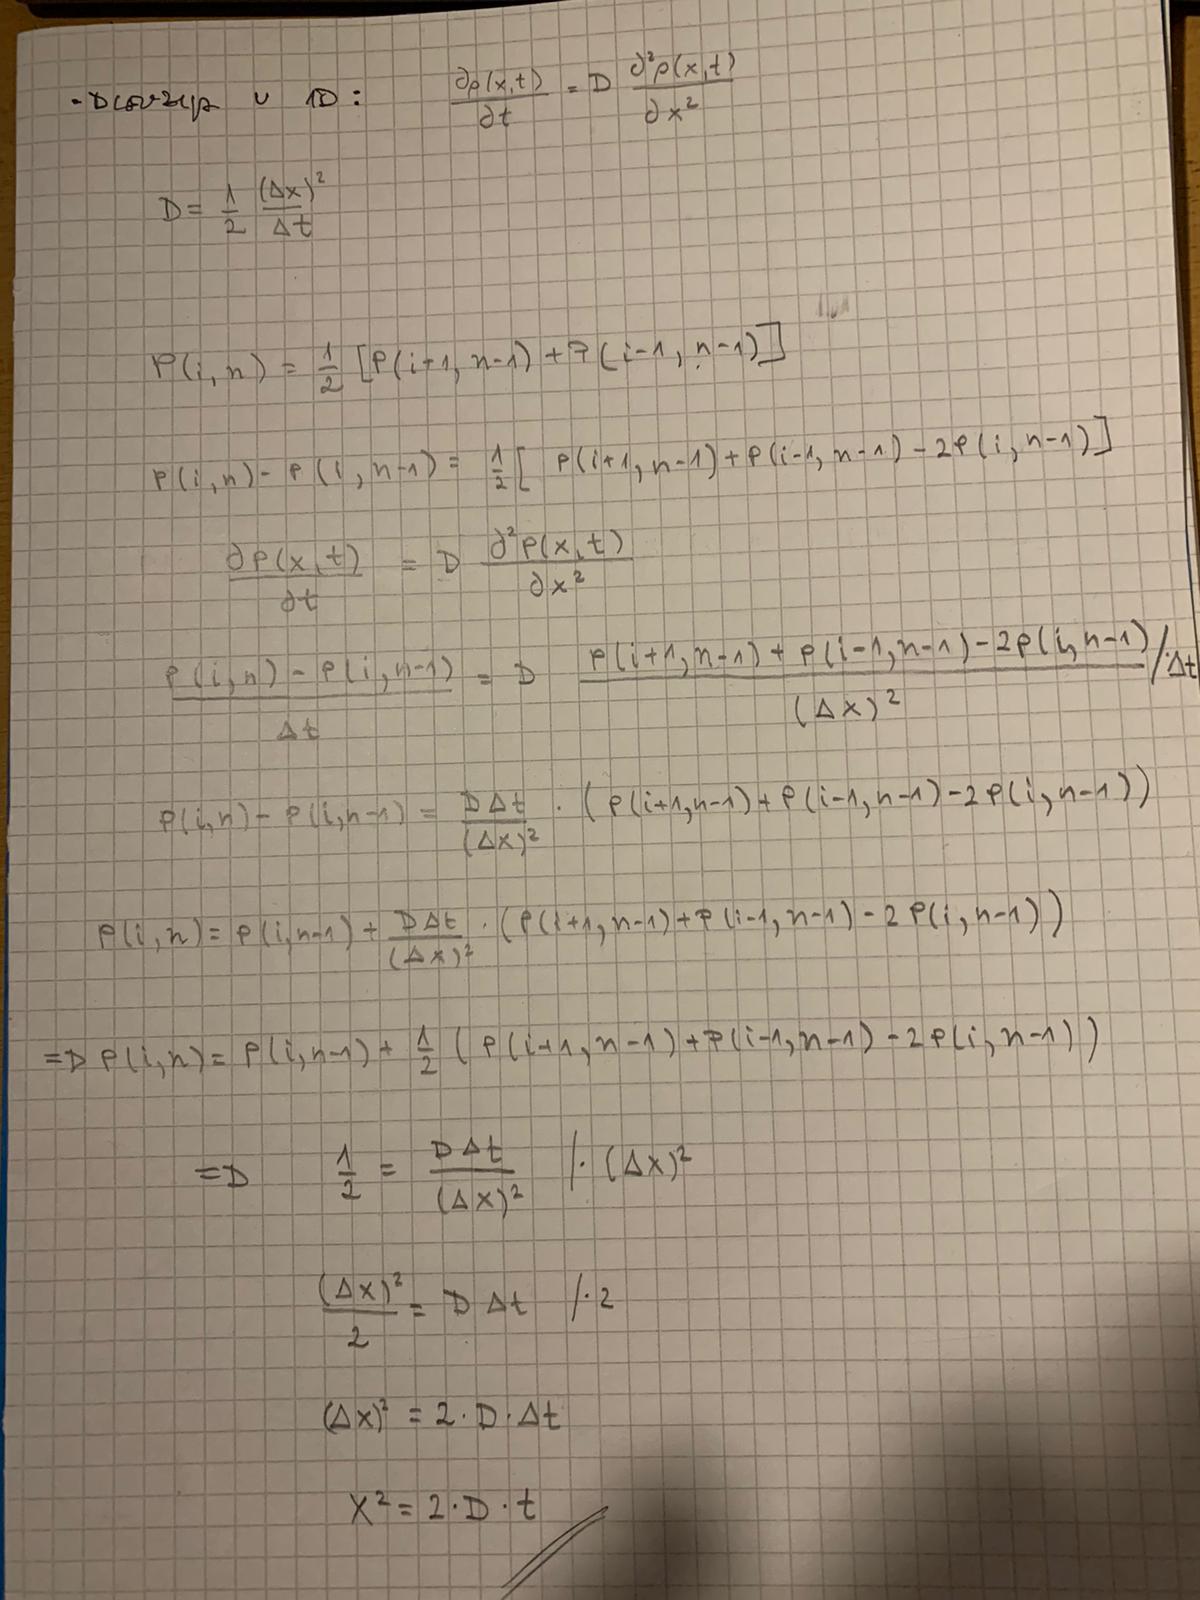 u 1D: ∂ρ(x,t)/∂t = D ∂²ρ(x,t)/∂x²
D = 1/2 (Δx)²/Δt
P(i,n) = 1/2 [P(i+1, n-1) + P(i-1, n-1)]
P(i,n) - P(i, n-1) = 1/2 [P(i+1, n-1) + P(i-1, n-1) - 2P(i, n-1)]
∂P(x,t)/∂t = D ∂²P(x,t)/∂x²
P(i,n) - P(i, n-1)/Δt = D P(i+1, n-1) + P(i-1, n-1) - 2P(i, n-1)/(Δx)² /·Δt
P(i,n) - P(i,n-1) = DΔt/(Δx)² · (P(i+1,n-1) + P(i-1, n-1) - 2P(i, n-1))
P(i,n) = P(i,n-1) + DΔt/(Δx)² · (P(i+1, n-1) + P(i-1, n-1) - 2P(i, n-1))
=D P(i,n) = P(i,n-1) + 1/2 (P(i+1, n-1) + P(i-1, n-1) - 2P(i, n-1))
=D 1/2 = DΔt/(Δx)² /· (Δx)²
(Δx)²/2 = D Δt /·2
(Δx)² = 2·D·Δt
X² = 2·D·t